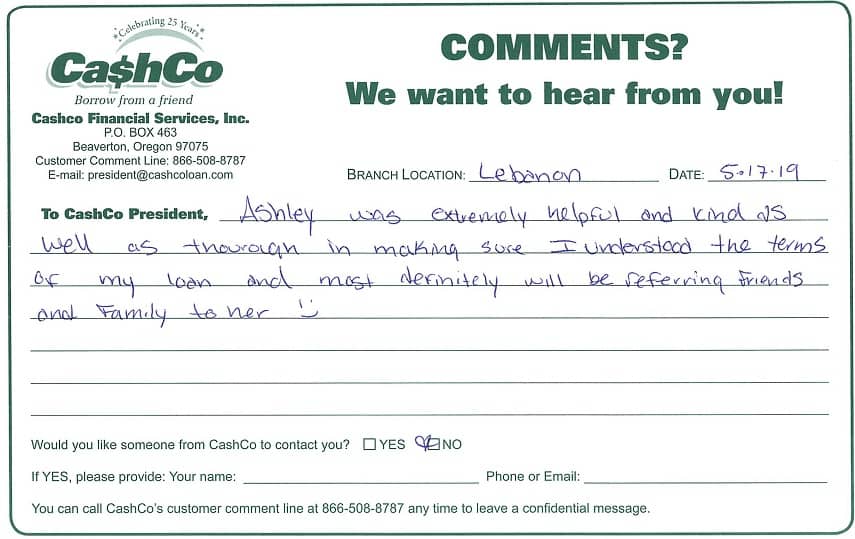 Celebrating 25 Years
Ca$hCo
Borrow from a friend
Cashco Financial Services, Inc.
P.O. BOX 463
Beaverton, Oregon 97075
Customer Comment Line: 866-508-8787
E-mail: president@cashcoloan.com
COMMENTS?
We want to hear from you!
BRANCH LOCATION: Lebanon DATE: 5.17.19
To CashCo President, Ashley was extremely helpful and kind as
well as thourough in making sure I understood the terms
of my loan and most definitely will be referring Friends
and Family to her
Would you like someone from CashCo to contact you? YES NO
If YES, please provide: Your name: Phone or Email:
You can call CashCo's customer comment line at 866-508-8787 any time to leave a confidential message.